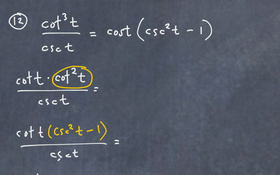 (12) cot³t / csc t = cost (csc²t - 1)
cot t · cot²t / csc t =
cot t (csc²t - 1) / csc t =